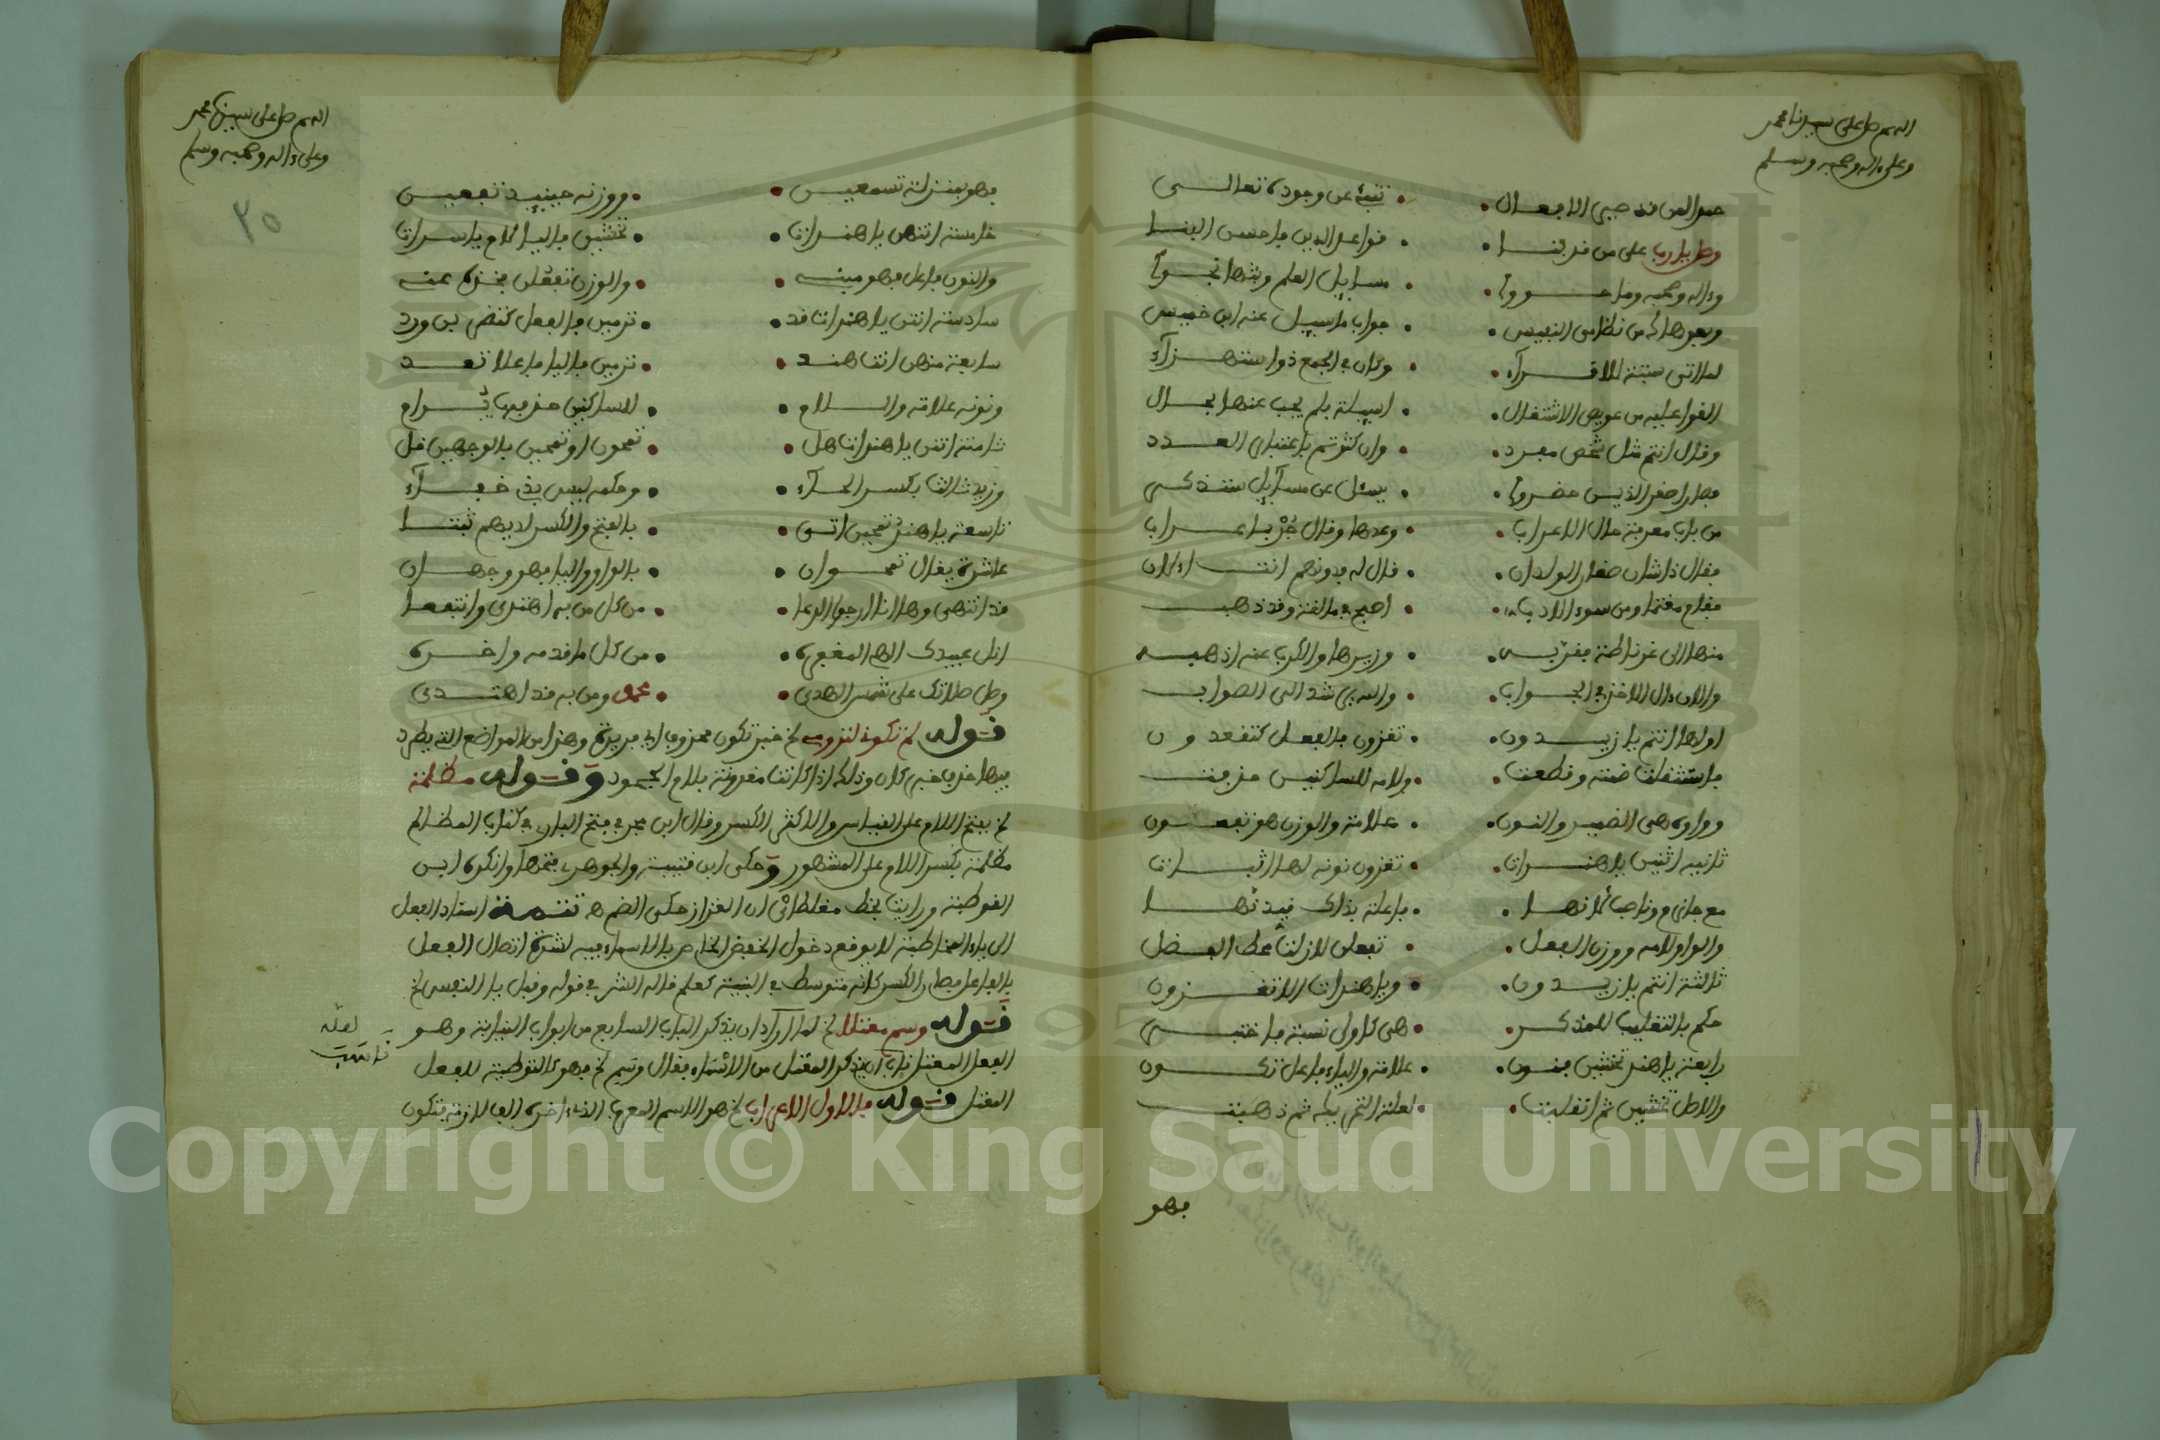 اللهم صل على سيدنا محمد
وعلى ءاله وصحبه وسلم
حمدا لمن قد صرف الافعال • تنبئ عن وجوده تعالى
وصل يا رب على من قد بنا • قواعد الدين باحسن البنا
وءاله وصحبه وما حووا • مسايل العلم
وبعد هاك من نظامى النفيس • جواب ما سيل عنه ابن خميس
لما اتى سبتة للاقراء • وكان فى الجمع ذوا ستهزاء
القوا عليه من عويص الاشتغال • اسيلة بلم يجب عنها بحال
وقال انتم مثل شخص مفرد • وان كثرتم باعتبار العدد
فصار اصغر الذين حضروا • يسئل عن مسايل ستذكر
من باب معرفة حال الاعراب • وعدها وقال
فقال ذا شان صغار الولدان • قال له فدونهم انت
فقام مغتما ومن سوء الادب • اصبح فى مالقة وقد ذهب
منها الى غرناطة فقربه • وزيرها والكرب عنه اذهبه
والان وان الاخذ فى الجواب • والله يرشد الى الصواب
اولها انتم يا زيدون • تغزون بالفعل كتقعدون
فاستثقلت ضمة وقطعت • ولامه للساكنين حذفت
وواوه هى الضمير والنون • علامة والوزن هو تفعون
ثانيه اثنين يا هندات • تغزون نونه لها اثبات
مع جازم وناصب لانها • فاعلة بذاك قيدنها
والواو لامه ووزن الفعل • تفعلن لازلت محط الفضل
ثالثة انتم يا زيدون • ويا هندات الا تغزون
حكم بالتغليب للمذكر • هى كاولى نسبة فاختبر
رابعة يا هند تخشين فنون • علامة والياء فاعل تكون
والاصل تخشيين ثم انقلبت • لعلة التحريك ثم ذهبت
فهو
اللهم صل على سيدنا محمد
وعلى ءاله وصحبه وسلم
٣٥
فهو بمنزلة تسمعين • ووزنه حينيذ تفعين
خامسة انتن يا هندات • تخشين باليا لام يا سرات
والنون فاعل فهو مبنى • والوزن تفعلن فخذه عنى
سادسة انتن يا هندات قد • ترمين بالفعل كتضربن ورد
سابعة منهن انت هند • ترمين باليا فاعلا تعد
ونونه علامة واللام • للساكنين حذفها يرام
ثامنة انتن يا هندات هل • تمحون او تمحين بالوجهين قل
وزيد ثالث بكسر الحاء • وحكمه ليس بذى خفاء
تاسعة يا هند تمحين اتى • بالفتح والكسر لديهم ثبتا
عاشرة يقال تمحوان • بالواو واليا فهو وجهان
قد انتهى وها انا ارجو الدعا • من كل من به اهتدى وانتفعا
انل عبيدك الهى المغفره • من كل ما قدمه واخره
وصل صلاتك على شمس الهدى • محمد ومن به قد اهتدى
قوله لم تكونى لترومى الخ خبر تكون محذوف اى مريدة وهذا من المواضع التى يطرد
فيها حذف خبر كان وذلك اذا كانت مقرونة بلام الجحود وقوله مظلمة
الخ بفتح اللام على القياس والاكثر الكسر وقال ابن حجر فى فتح البارى فى كتاب المظالم
مظلمة بكسر اللام على المشهور وحكى ابن قتيبة والجوهرى فتحها وانكره ابن
القوطية ورايت بخط مغلطاى ان القزاز حكى الضم هـ تتمة اسناد الفعل
الى ياء المخاطبة لا يوقع دخول الخفض الخاص بالاسماء فيه لشدة اتصال الفعل
بالفاعل فصار الكسر كانه متوسط فى البنية كعلم قاله الشر فى قوله وقبل يا النفس الخ
قوله وسم معتلا الخ لما اراد ان يذكر الباب السابع من ابواب النيابة وهو
الفعل المعتل ناسب ان يذكر المعتل من الاسماء فقال وسم الخ فهو كالتوطية للفعل
المعتل قوله فالاول الاعراب الخ هو الاسم المعرب الذى اخره الف لازمة فتكون
لعله
ناسب